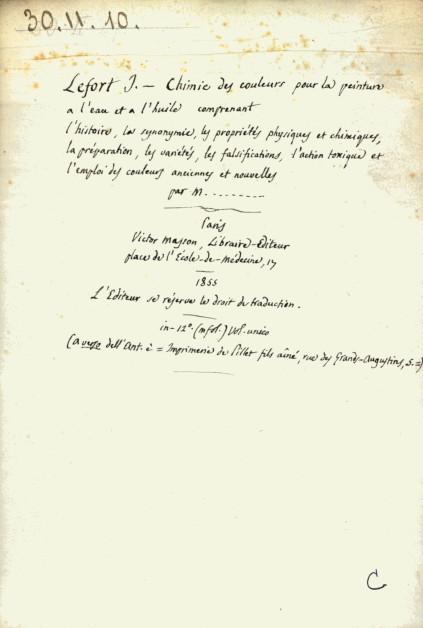 30.11.10.
Lefort J. — Chimie des couleurs pour la peinture
a l'eau et a l'huile comprenant
l'histoire, la synonymie, les propriétés physiques et chimiques,
la préparation, les variétés, les falsifications, l'action toxique et
l'emploi des couleurs anciennes et nouvelles
par M. .........
Paris
Victor Masson, Libraire-Editeur
place de l'Ecole-de-Médecine, 17
1855
L'Editeur se réserve le droit de traduction.
in-12°. (mfol.) Vol. unico
(a verso dell'Ant. è = Imprimerie de Pillet fils aîné, rue des Grands-Augustins, 5. =)
C